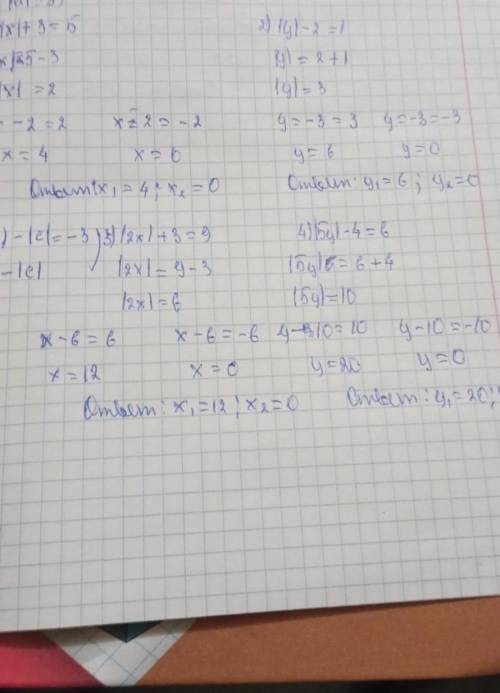 |x|+3=5
2) |y|-2=1
x|=5-3
|y|=2+1
|x|=2
|y|=3
-2=2
x-2=-2
y=-3=3
y=-3=-3
x=4
x=0
y=6
y=0
Ответ: x₁=4; x₂=0
Ответ: y₁=6; y₂=0
) -|c|=-3
3) |2x|+3=9
4) |5y|-4=6
-|c|
|2x|=9-3
|5y|=6+4
|2x|=6
|5y|=10
x-6=6
x-6=-6
y-10=10
y-10=-10
x=12
x=0
y=20
y=0
Ответ: x₁=12; x₂=0
Ответ: y₁=20;